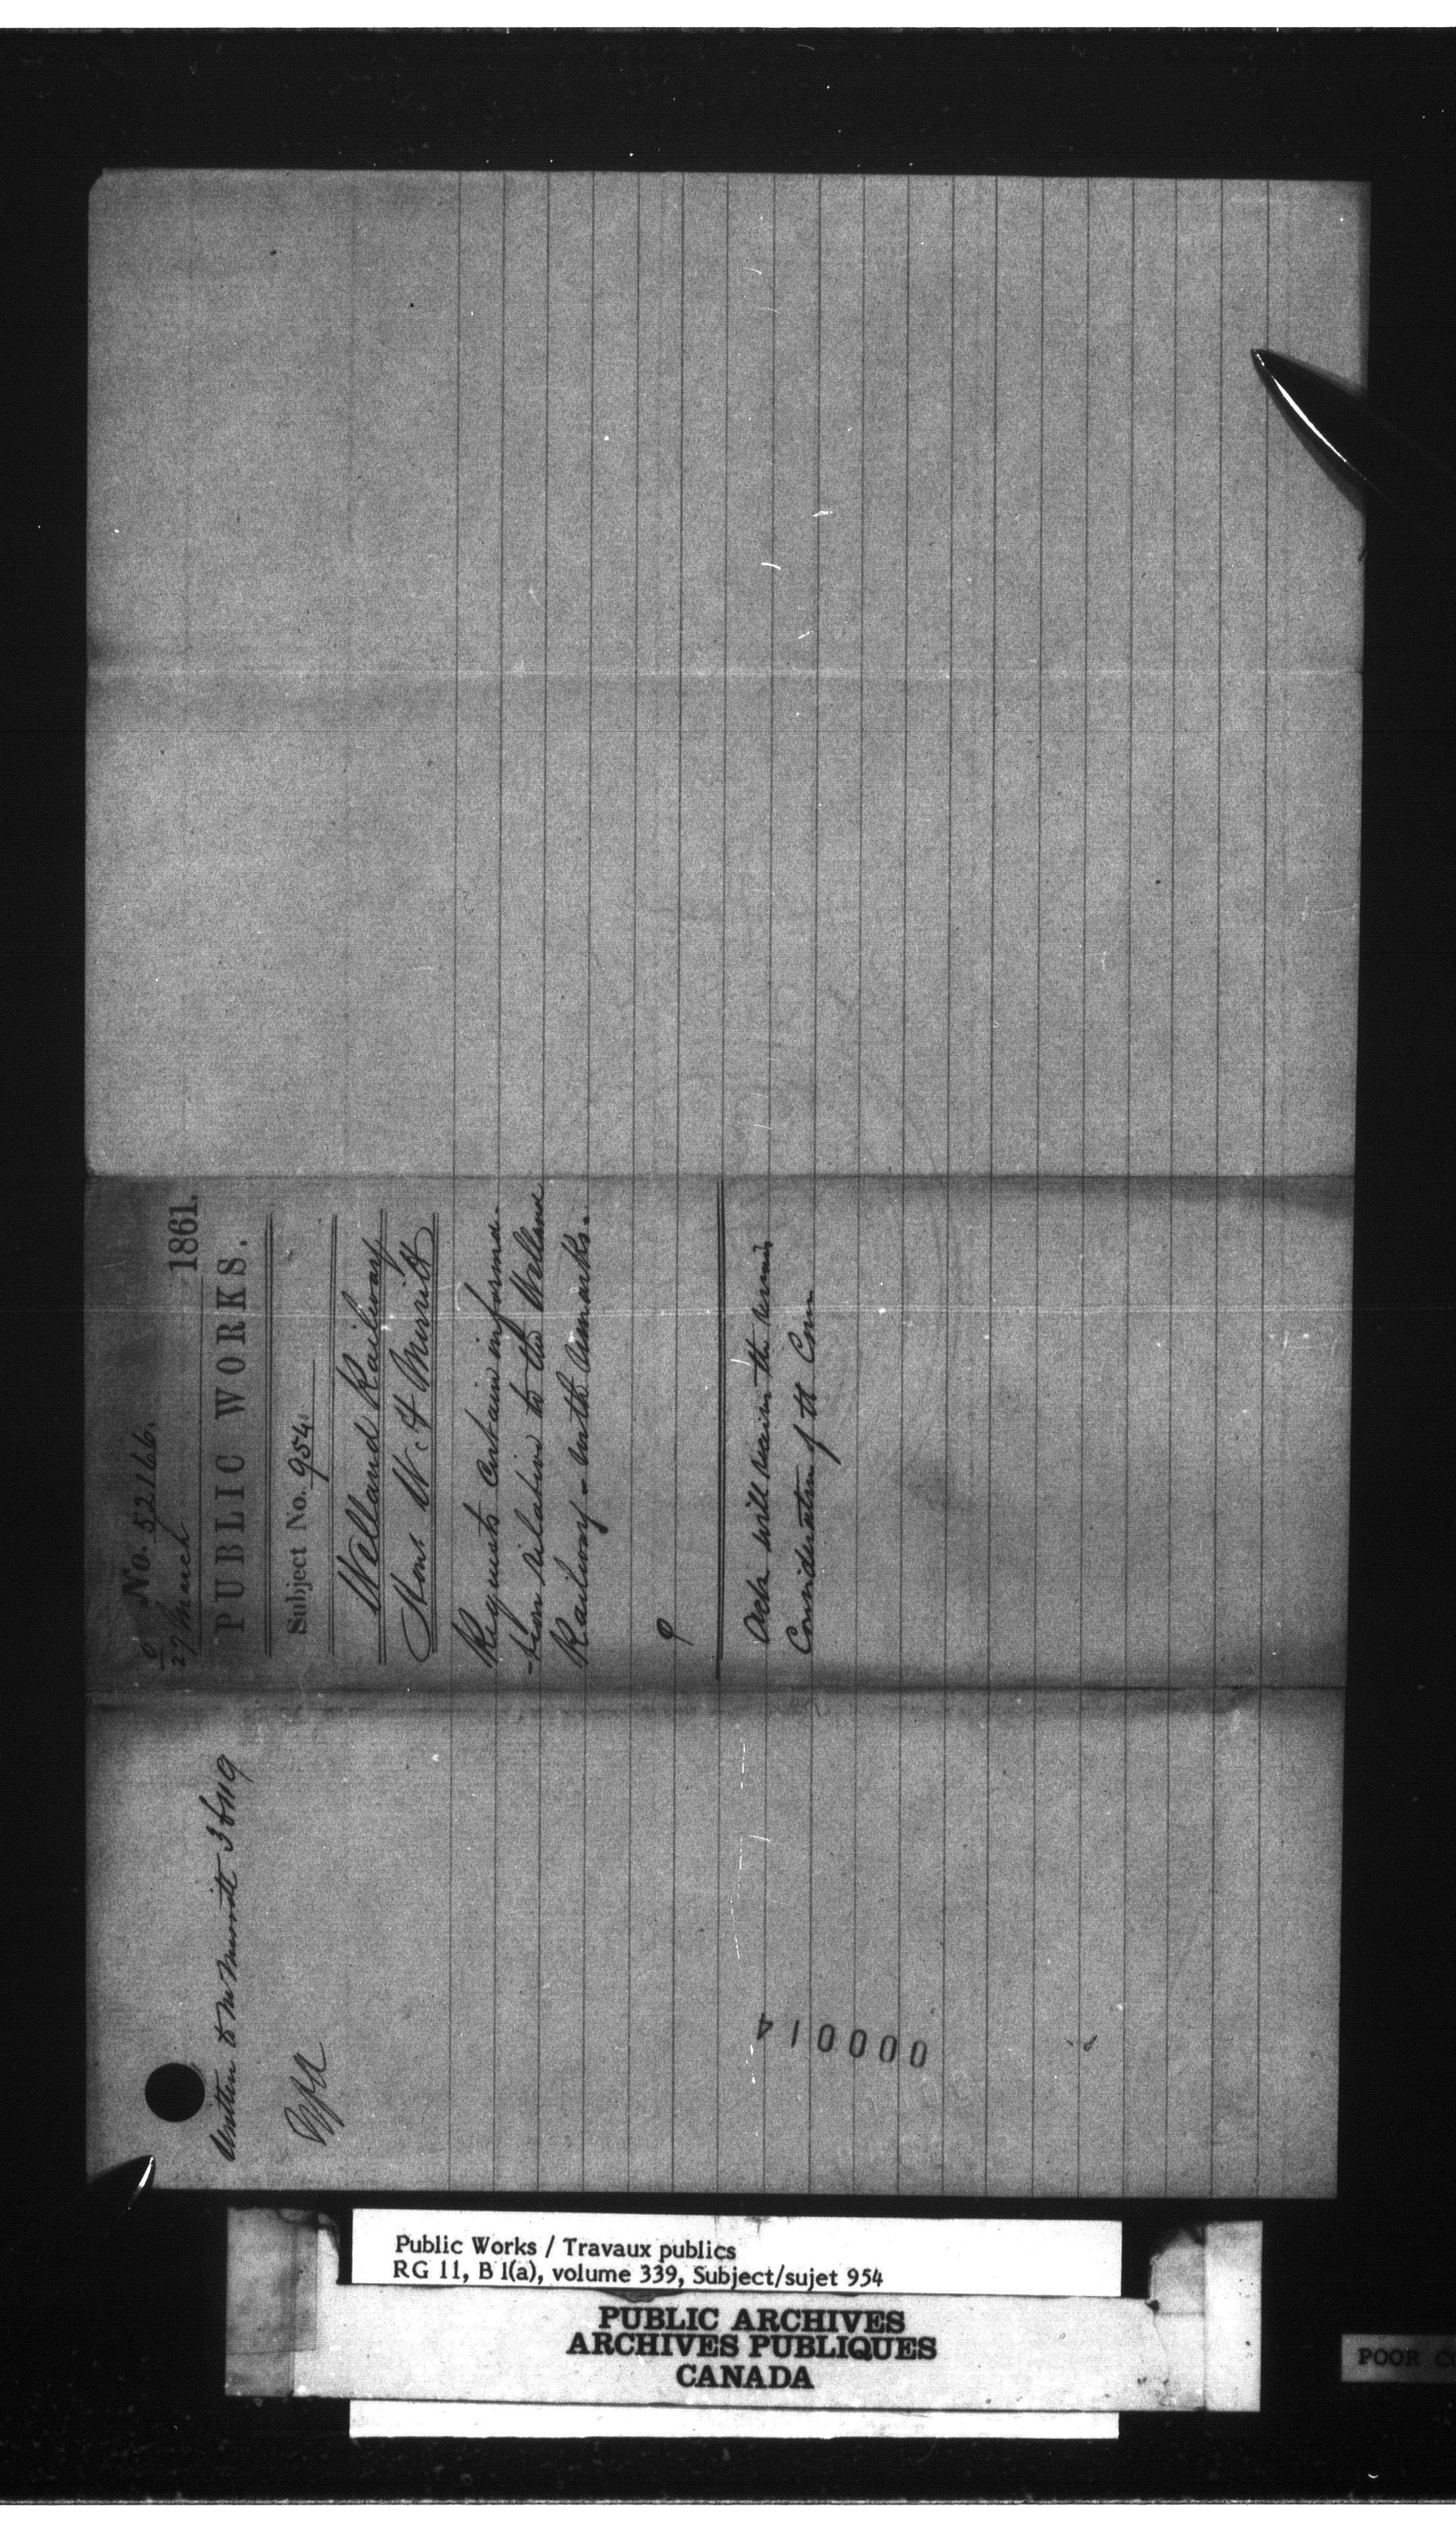 No. 52166.
27 March 1861.
PUBLIC WORKS.
Subject No. 954
Welland Railway
Hon. W. H. Merritt
Requests certain informa-
-tion relative to the Welland
Railway - with remarks.
Ack will receive the
Consideration of the Com
Written to Mr Merritt 36119
000014
Public Works / Travaux publics
RG 11, B 1(a), volume 339, Subject/sujet 954
PUBLIC ARCHIVES
ARCHIVES PUBLIQUES
CANADA
POOR